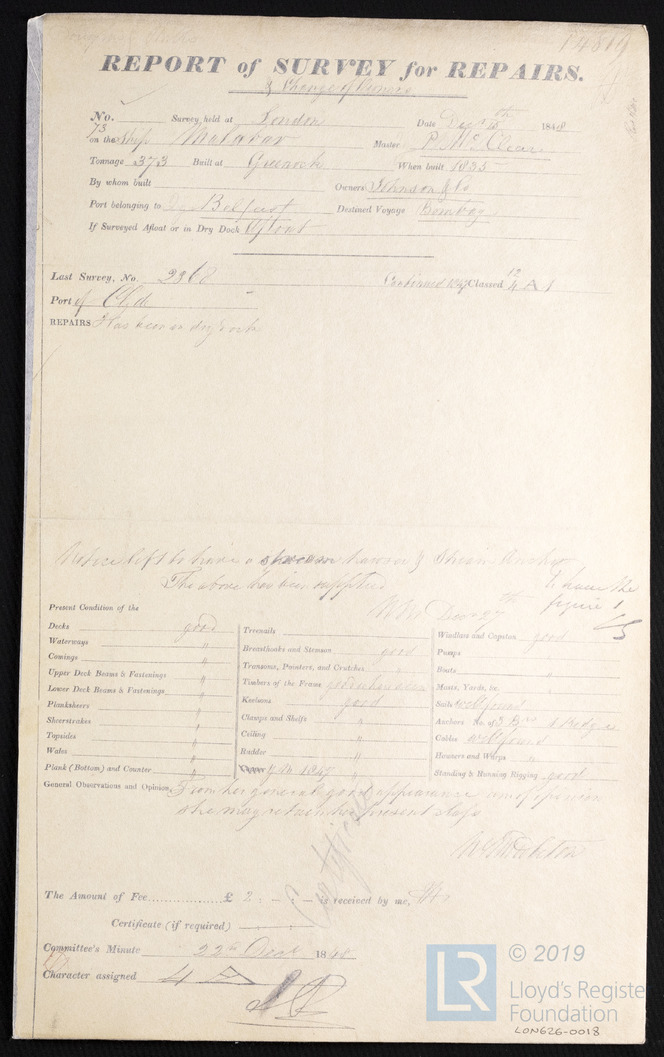 REPORT of SURVEY for REPAIRS.
& Change of Owners
No. 73 Survey held at London Date Decr 15th 1848
on the Ship Malabar Master P. McClean
Tonnage 373 Built at Greenock When built 1835
By whom built Owners Johnson & Co
Port belonging to Belfast Destined Voyage Bombay
If Surveyed Afloat or in Dry Dock Afloat
Last Survey, No. 2368 Continued 1847 Classed 12 A 1
Port of Clyde
REPAIRS Has been in dry dock
Notice left to have a stream hawser & Stream Anchor
The above has been supplied to have the
Decr 27th figure 1
Present Condition of the
Decks good
Waterways "
Comings "
Upper Deck Beams & Fastenings "
Lower Deck Beams & Fastenings "
Planksheers "
Sheerstrakes "
Topsides "
Wales "
Plank (Bottom) and Counter "
Treenails
Breasthooks and Stemson good
Transoms, Pointers, and Crutches "
Timbers of the Frame good when seen
Keelsons good
Clamps and Shelfs "
Ceiling "
Rudder "
Copper 1847
Windlass and Capston good
Pumps "
Boats "
Masts, Yards, &c. "
Sails well found
Anchors No. of 3 Brs 1 Kedge
Cables well found
Hawsers and Warps "
Standing & Running Rigging good
General Observations and Opinion From her general good appearance am of opinion
she may retain her present class
Certificate
The Amount of Fee £ 2 : - : - is received by me,
Certificate (if required)
Committee's Minute 22nd Decr 1848
Character assigned 4 A
LR
© 2019
Lloyd's Register
Foundation
LON626-0018